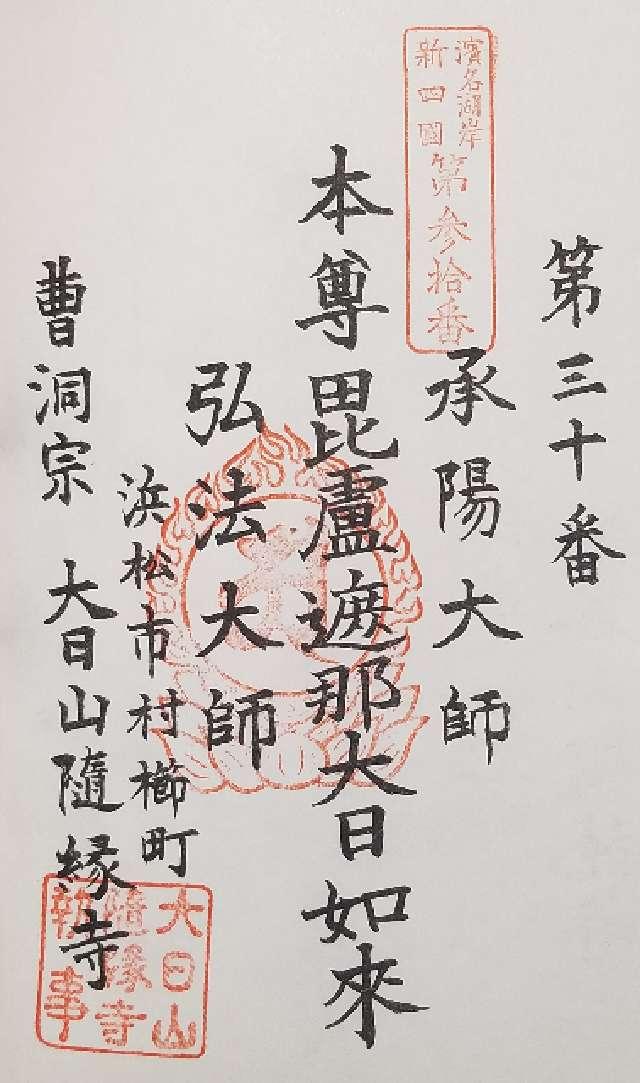 第三十番
濱名湖岸
新四國
第参拾番
承陽大師
本尊毘盧遮那大日如來
弘法大師
浜松市村櫛町
曹洞宗 大日山隨縁寺
大日山
隨縁寺
執事